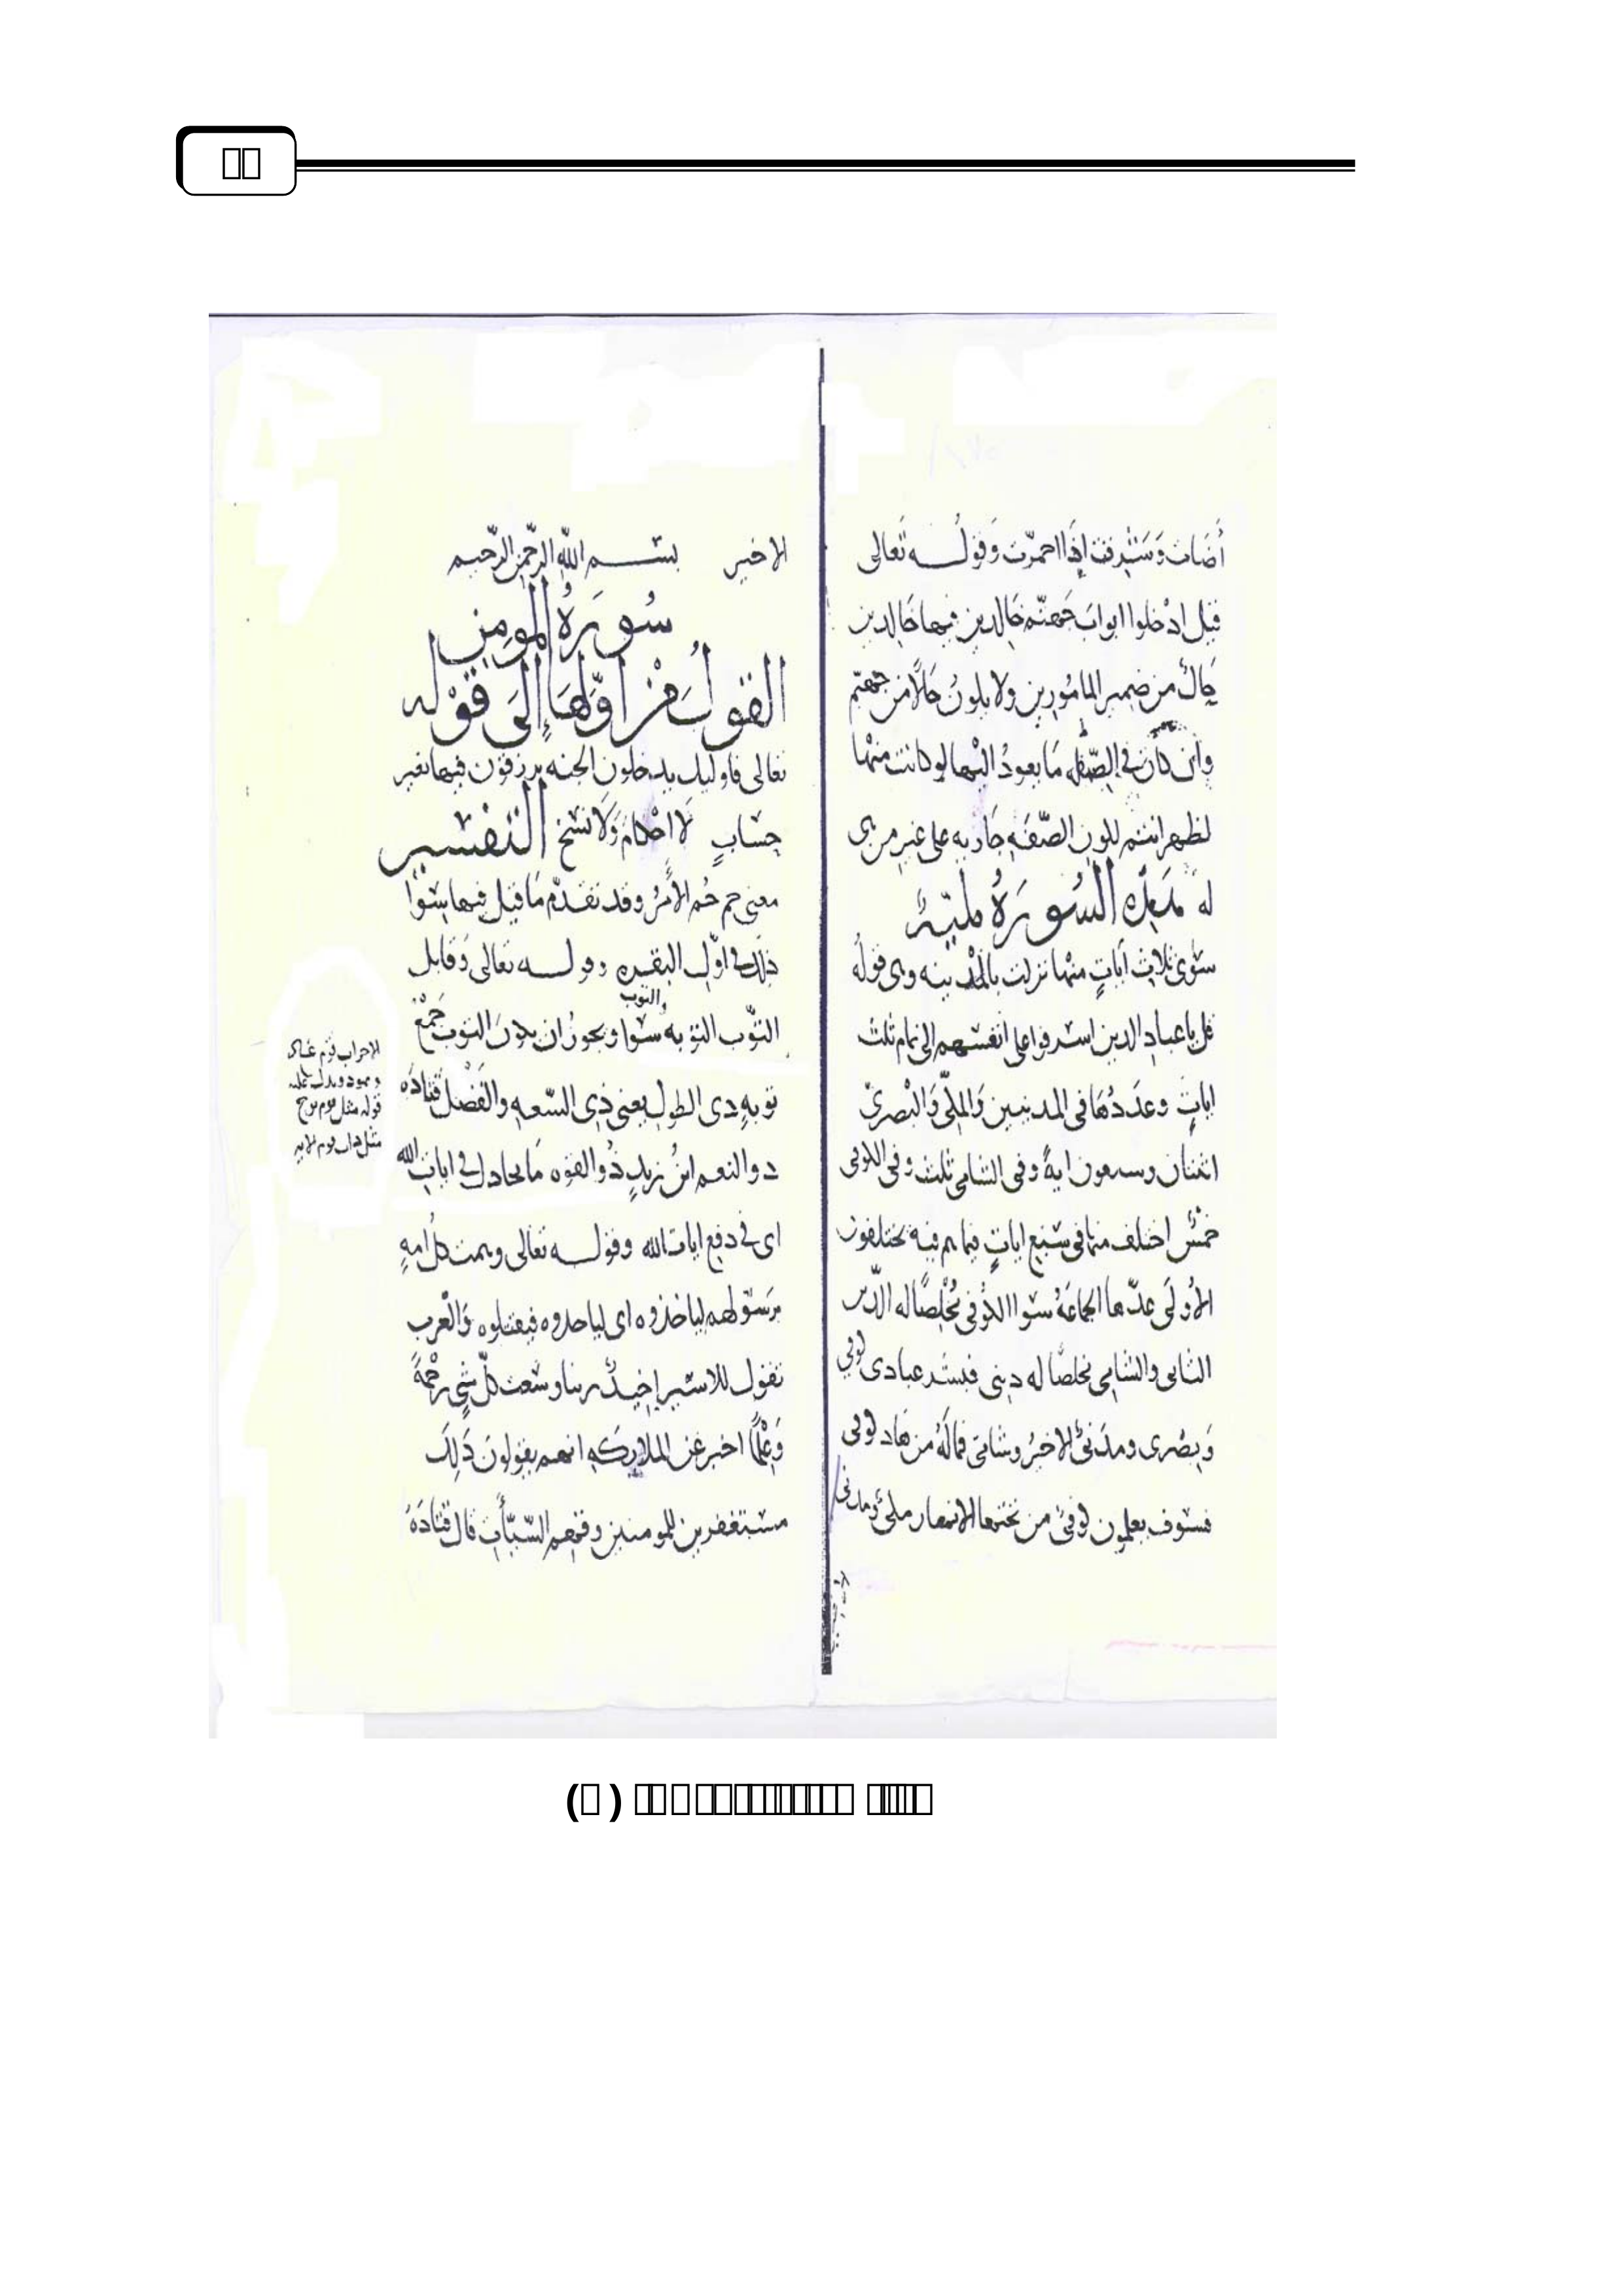 أضات وشرقت اذا احمرّت وقوله تعالى
قيل ادخلوا ابواب جهنّم خالدين فيها خالدين
حال من ضمير المامورين ولا يكون حالا من جهنّم
وان كان في الصّفة ما يعود اليها لو كانت منها
لظهر انتم لكون الصّفة جاريه على غير من هي
له هذه السّورة مكيّة
سوى ثلاث آيات منها نزلت بالمدينه وهي قوله
قل يا عبادي الذين اسرفوا على انفسهم الى تمام ثلث
ايات وعددها في المدنيين والمكّي والبصريّ
اثنتان وسبعون اية وفي الشامي ثلث وفي الكوفي
خمس اختلف منها في سبع ايات فيما هم فيه يختلفون
الأولى عدّها الجماعة سوا الكوفي مخلصا له الدّين
الثاني والشامي مخلصا له ديني فبشر عبادي كوفي
وبصرى ومدنيّ الاخير وشامي فماله من هاد كوفي
فسوف يعلمون كوفيّ من تحتها الانهار مكيّ ومدني
الاخير بسم الله الرحمن الرحيم
سورة المومن
القول من اوّلها إلى قوله
تعالى فاوليك يدخلون الجنه يرزقون فيها بغير
حساب لا احكام ولا نسخ التفسير
معنى حم حُم الأمر وقد تقدّم ما قيل فيها سوا
ذلك في اوّل البقره وقوله تعالى وقابل
والتوب
التّوب التوبه سوا ويجوز ان يكون التوب جمع
توبه ذي الطول يعني ذي السّعه والفضل قتادة
ذو النعم ابن زيد ذو القوه ما يجادل في ايات الله
اى في دفع ايات الله وقوله تعالى وهمت كل امه
برسولهم لياخذوه اى لياخذوه فيقتلوه والعرب
تقول للاسير اخيذ ربنا وسعت كلّ شي رحمة
وعلما اخبر عن الملايكه انهم يقولون ذلك
مستغفرين للمومنين وقهم السّيّأت قال قتادة
الاحزاب قوم عاد
وثمود ويدل عليه
قوله مثل يوم نوح
مثل داب قوم الايه